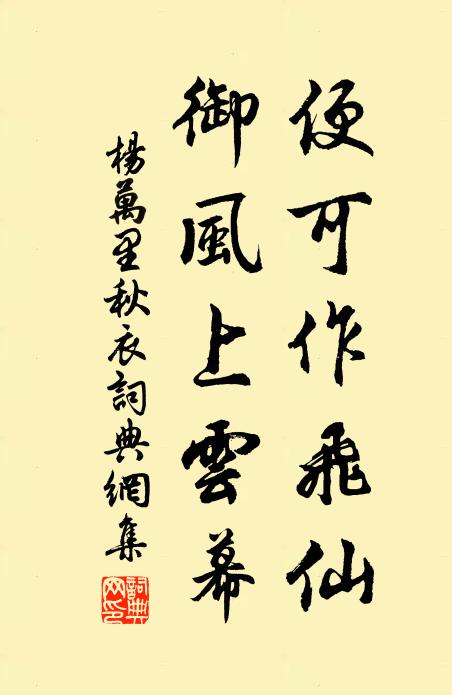 便可作飛仙
御風上雲幕
楊萬里秋衣詞典網集
詞典網印